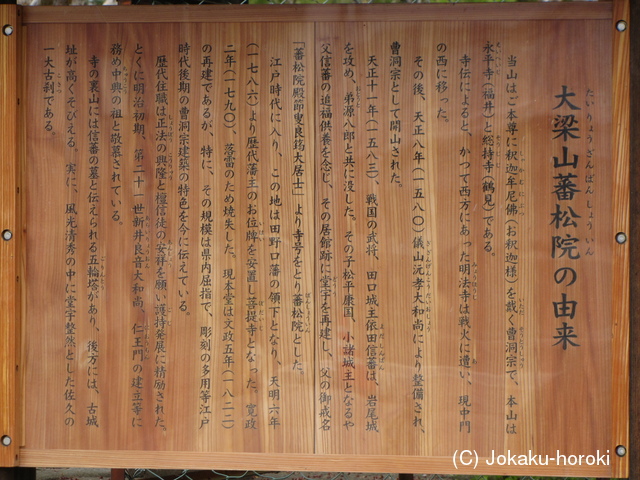 大梁山蕃松院の由来
たいりょうざんばんしょういん
当山はご本尊に釈迦牟尼佛(お釈迦様)を戴く曹洞宗で、本山は
永平寺(福井)と総持寺(鶴見)である。
寺伝によると、かつて西方にあった明法寺は戦火に遭い、現中門
の西に移った。
その後、天正八年(一五八〇)儀山沅孝大和尚により整備され、
曹洞宗として開山された。
天正十一年(一五八三)、戦国の武将、田口城主依田信蕃は、岩尾城
を攻め、弟源八郎と共に没した。その子松平康国、小諸城主となるや
父信蕃の追福供養を念じ、その居館跡に堂宇を再建し、父の御戒名
「蕃松院殿節叟良筠大居士」より寺号をとり蕃松院とした。
江戸時代に入り、この地は田野口藩の領下となり、天明六年
(一七八六)より歴代藩主のお位牌を安置し菩提寺となった。寛政
二年(一七九〇)、落雷のため焼失した。現本堂は文政五年(一八二二)
の再建であるが、特に、その規模は県内屈指で、彫刻の多用等江戸
時代後期の曹洞宗建築の特色を今に伝えている。
歴代住職は正法の興隆と檀信徒の安祥を願い護持発展に精励された。
とくに明治初期、第二十一世新井良音大和尚、仁王門の建立等に
務め中興の祖と敬慕されている。
寺の裏山には信蕃の墓と伝えられる五輪塔があり、後方には、古城
址が高くそびえる。実に、風光清秀の中に堂宇整然とした佐久の
一大古刹である。
(C) Jokaku-horoki